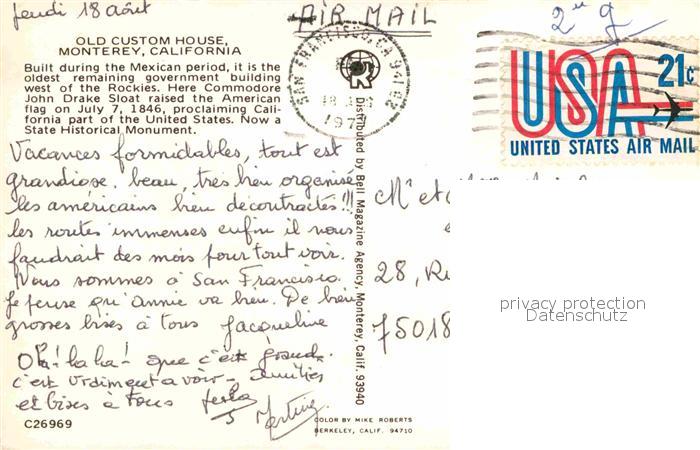 jeudi 18 août
AIR MAIL
OLD CUSTOM HOUSE,
MONTEREY, CALIFORNIA
Built during the Mexican period, it is the
oldest remaining government building
west of the Rockies. Here Commodore
John Drake Sloat raised the American
flag on July 7, 1846, proclaiming Cali-
fornia part of the United States. Now a
State Historical Monument.
Vacances formidables, tout est
grandiose, beau, très bien organisé
les américains bien décontractés!!!
les routes immenses enfin il nous
faudrait des mois pour tout voir.
Nous sommes à San Francisco.
Je pense qu'annie va bien. De bien
grosses bises à tous Jacqueline
Oh! la la! que c'est grand.
c'est vraiment a voir - amitiés
et bises à tous
Martine
C26969
Distributed by Bell Magazine Agency, Monterey, Calif. 93940
COLOR BY MIKE ROBERTS
BERKELEY, CALIF. 94710
SAN FRANCISCO, CA
18
1977
USA 21c
UNITED STATES AIR MAIL
Mr et
28, Ru
75018
privacy protection
Datenschutz